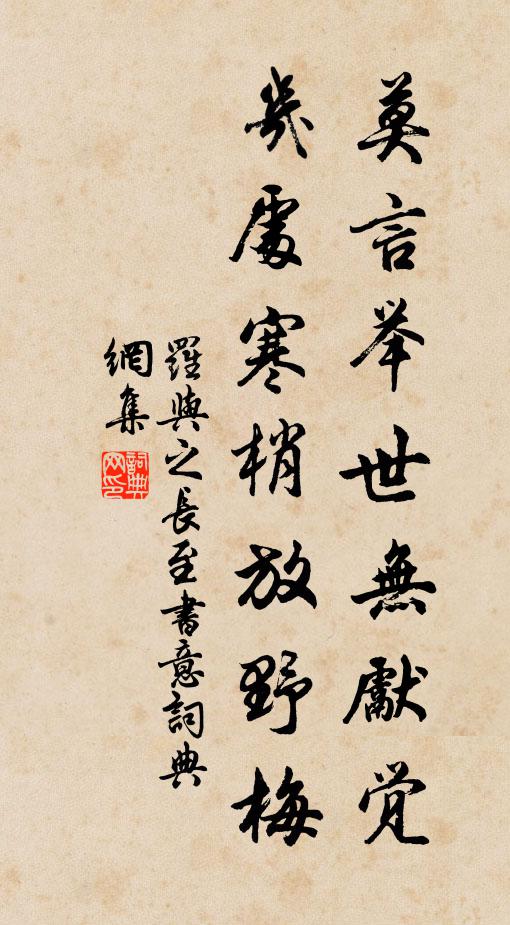 莫言举世無獻觉
幾處寒梢放野梅
羅與之長至書意詞典
網集
詞典
网印